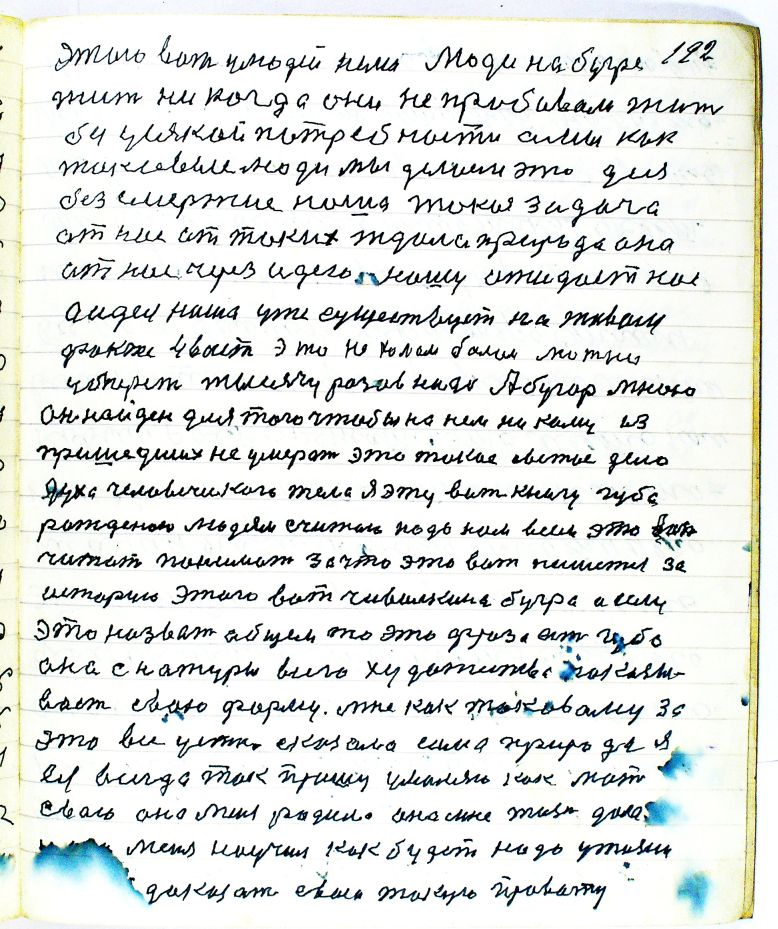 этого вот у людей нема Люди на бугре 192
жит ни когда они не пробовали жит
бы у всякой потребности сами как
таковые люди мы делаем это для
без смертие наша такая задача
от нас от таких ждала природа она
от нас через идею нашу ожидает нас
а идея наша уже существует на живом
факте
умереть тысячу разов надо А бугор мною
он найден для того чтобы на нем ни кому из
пришедших не умерат это такое святое дело
духа человеческого тела я эту вот книгу губа
рожденою людям считаю надо нам всем это
читат понимат за что это вот пишется за
историю этого вот чивилкина бугра а если
это назват общем то это фраза от губо
она с натуры
вает свою форму. мне как таковому за
это все устно сказала сама природа я
ея всегда так прашу умоляю как мат
сваю она меня радила она мне жизн дала
меня научил как будет надо у жизни
даказат сваю такую правату